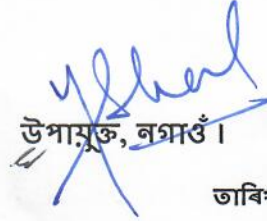 উপায়ুক্ত, নগাওঁ।
তাৰিখ